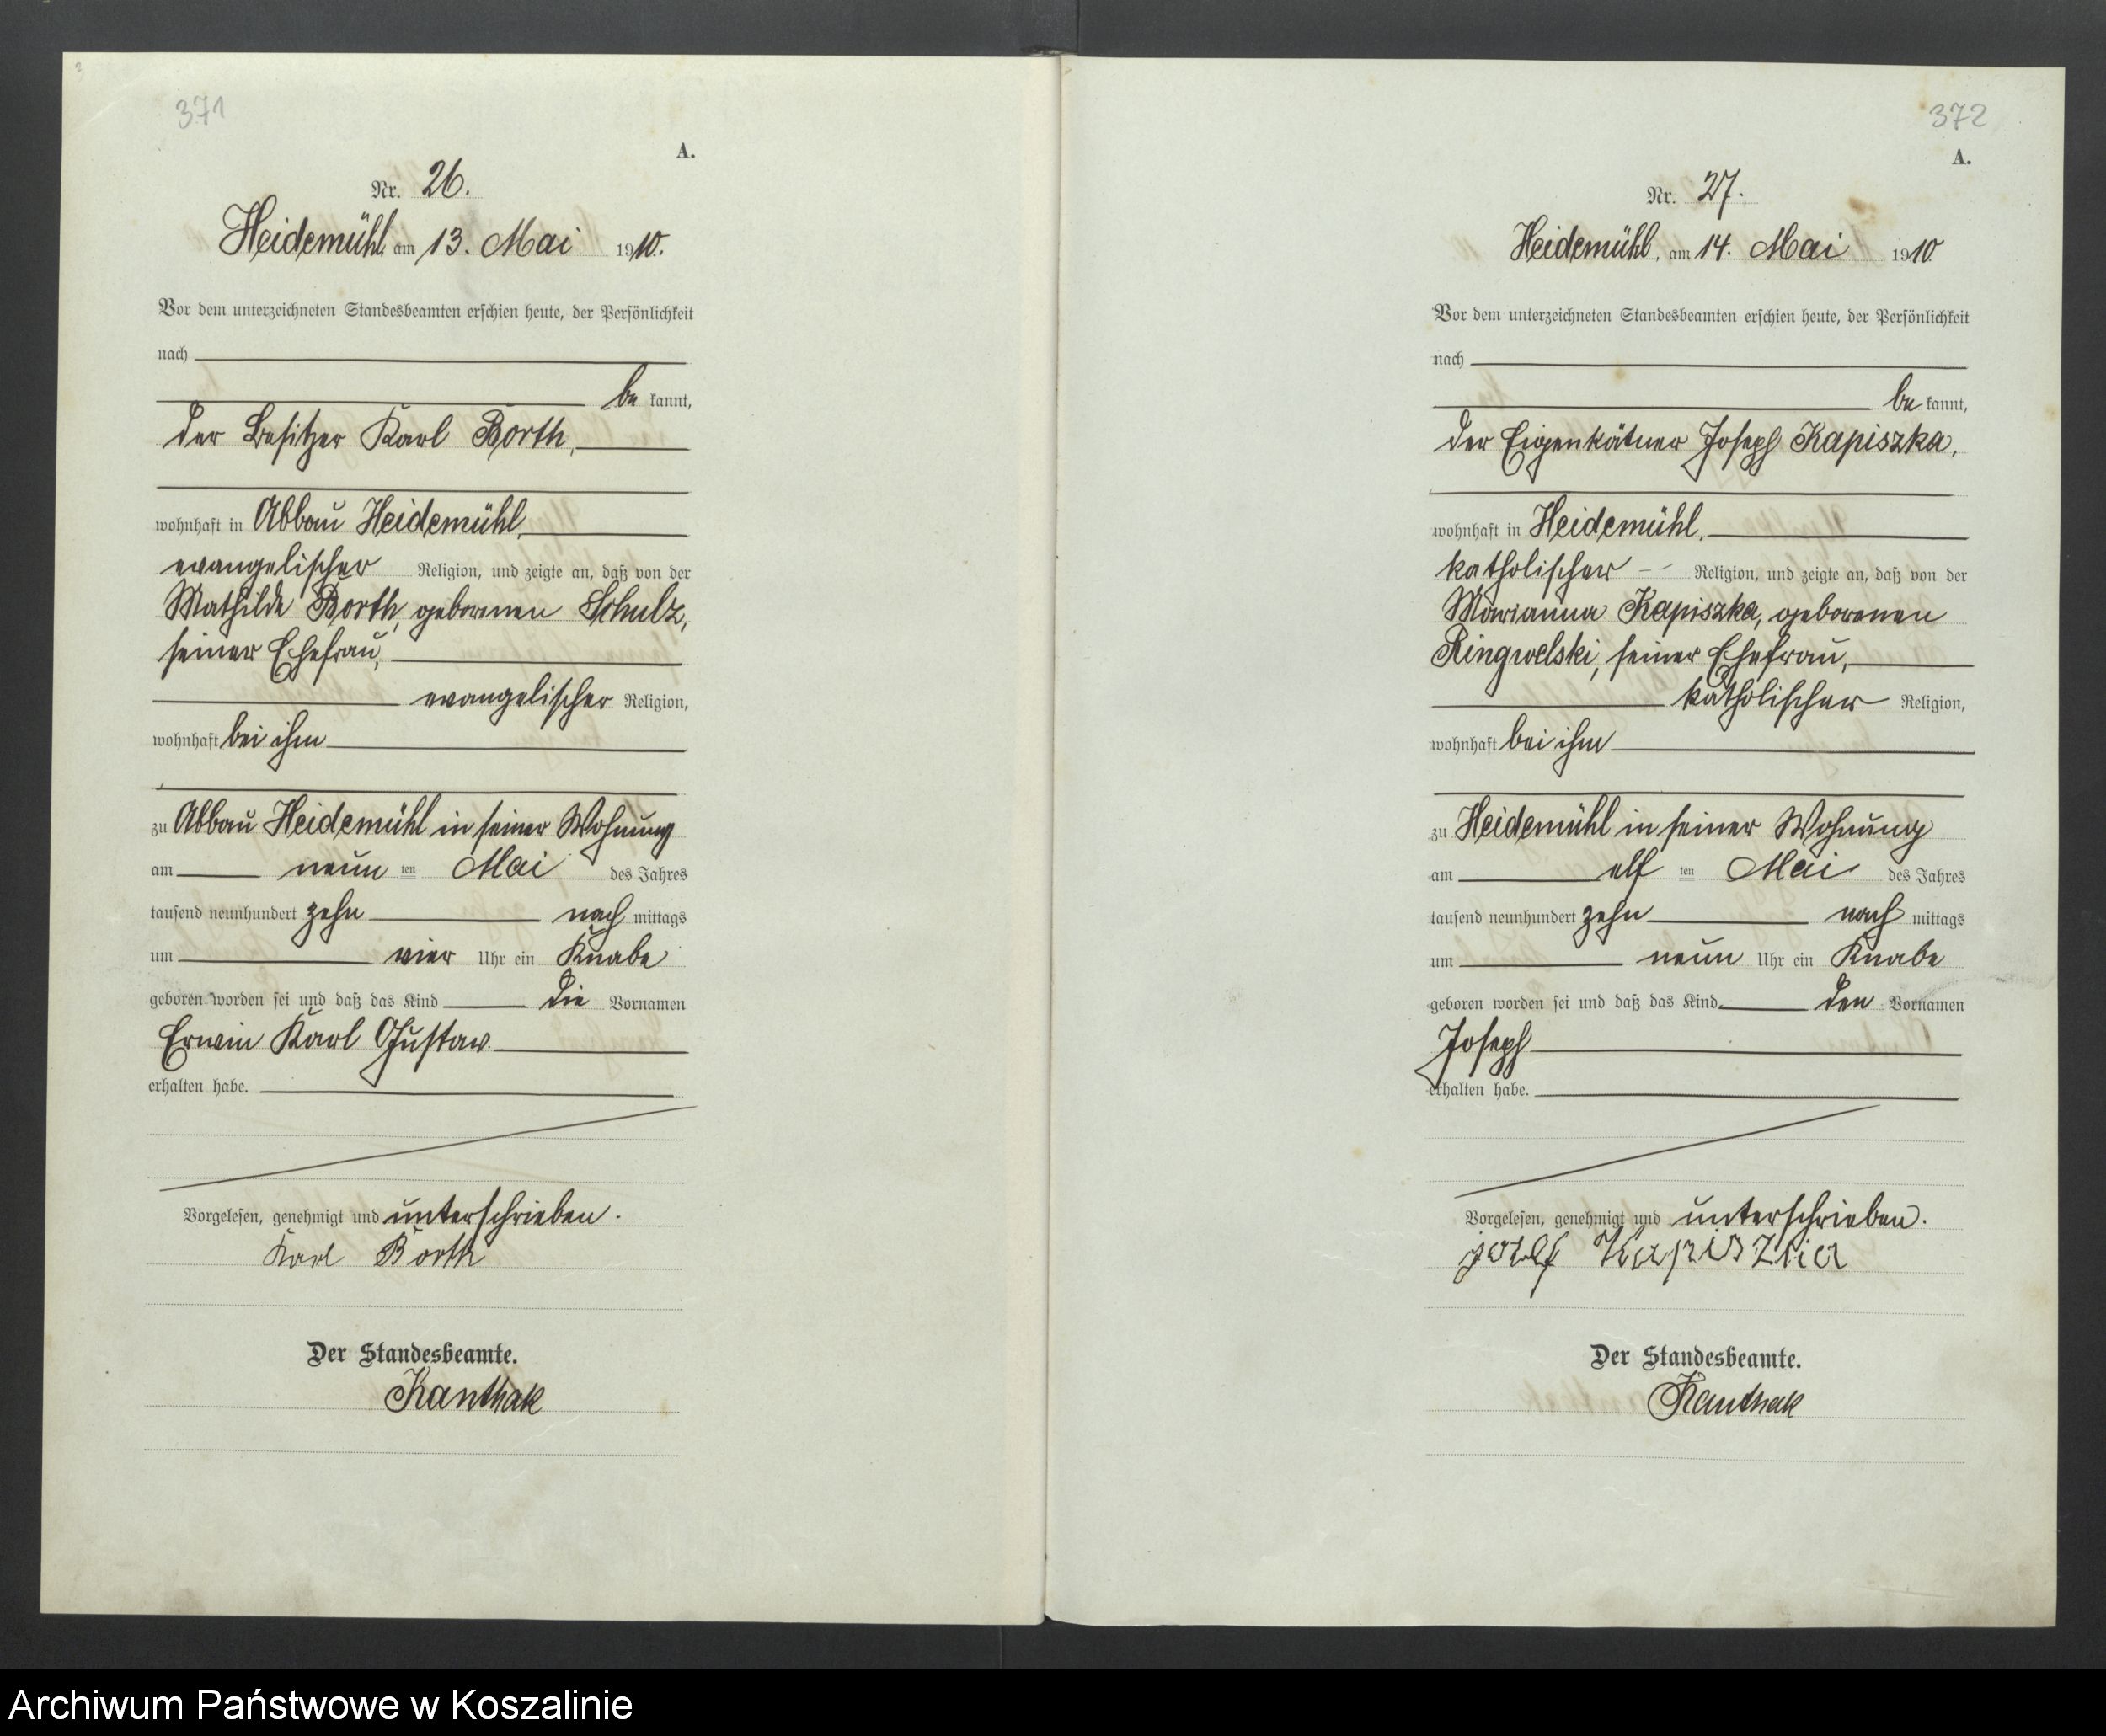 371
A.
Nr. 26.
Heidemühl am 13. Mai 1910.
Vor dem unterzeichneten Standesbeamten erschien heute, der Persönlichkeit
nach
be kannt,
der Besitzer Karl Borth,
wohnhaft in Abbau Heidemühl,
evangelischer Religion, und zeigte an, daß von der
Mathilde Borth, geborenen Schulz,
seiner Ehefrau,
evangelischer Religion,
wohnhaft bei ihm
zu Abbau Heidemühl in seiner Wohnung
am neun ten Mai des Jahres
tausend neunhundert zehn nach mittags
um vier Uhr ein Knabe
geboren worden sei und daß das Kind die Vornamen
Erwin Karl Gustav
erhalten habe.
Vorgelesen, genehmigt und unterschrieben.
Karl Borth
Der Standesbeamte.
Kanthak
372
A.
Nr. 27.
Heidemühl, am 14. Mai 1910
Vor dem unterzeichneten Standesbeamten erschien heute, der Persönlichkeit
nach
be kannt,
der Eigenkätner Joseph Kapiszka,
wohnhaft in Heidemühl,
katholischer Religion, und zeigte an, daß von der
Marianna Kapiszka, geborenen
Ringwelski, seiner Ehefrau,
katholischer Religion,
wohnhaft bei ihm
zu Heidemühl in seiner Wohnung
am elf ten Mai des Jahres
tausend neunhundert zehn nach mittags
um neun Uhr ein Knabe
geboren worden sei und daß das Kind den Vornamen
Joseph
erhalten habe.
Vorgelesen, genehmigt und unterschrieben.
Kapiszka
Der Standesbeamte.
Kanthak
Archiwum Państwowe w Koszalinie